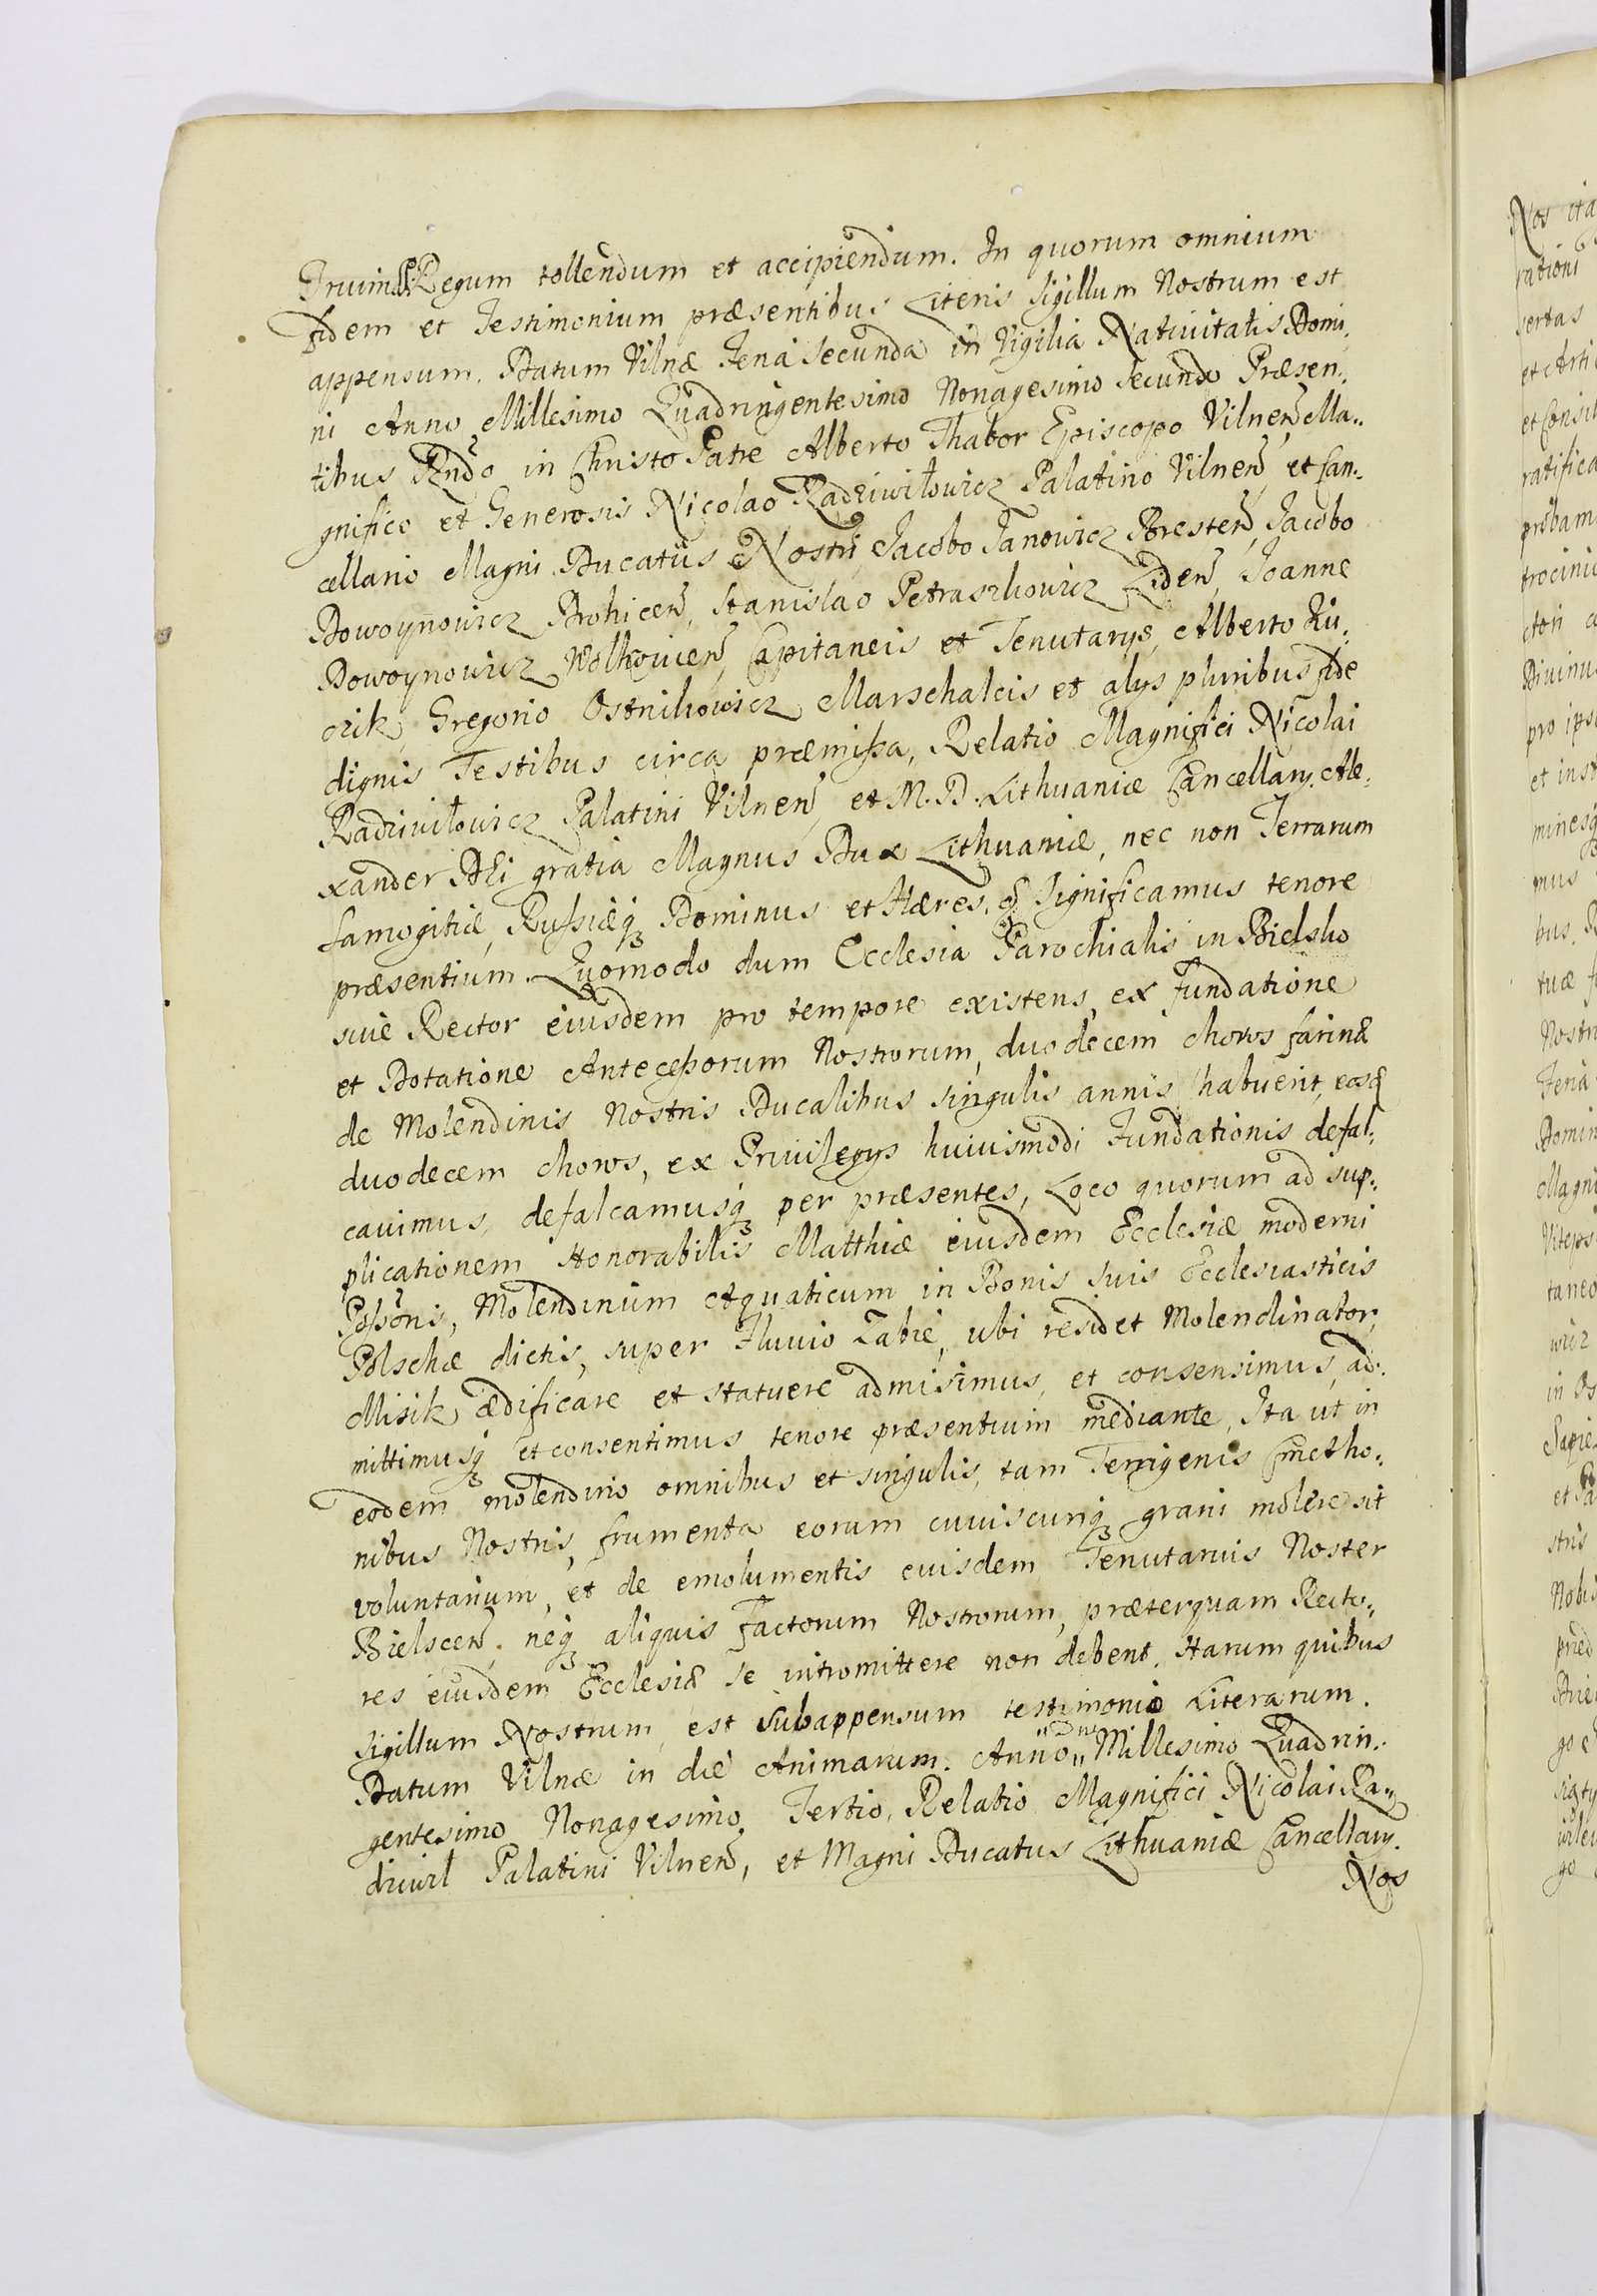 Trium Regum tollendum et accipiendum. In quorum omnium
fidem et Testimonium præsentibus Literis Sigillum Nostrum est
appensum. Datum Vilnæ Feria Secunda in Vigilia Natiuitatis Domi„
ni Anno Millesimo Quadringentesimo Nonagesimo Secundo Præsen„
tibus Rndo in Christo Patre Alberto Thabor Episcopo Vilnen̄ Ma„
gnifico et Generosis Nicolao Radziwiłowicz Palatino Vilnen̄, et Can„
cellario Magni Ducatus Nostri Jacobo Janowicz Bresten̄, Jacobo
Dowoynowicz Drohicen̄, Stanislao Petraszkowicz Liden̄, Joanne
Dowoynowicz Wolkowicen̄, Capitaneis et Tenutarys, Alberto Ku„
czik, Gregorio Ostnikowicz Marschalcis et alys pluribus fide
dignis Testibus circa præmissa, Relatio Magnifici Nicolai
Radziwiłowicz Palatini Vilnen̄, et M. D. Lithuaniæ Cancellary. Ale„
xander DEi gratia Magnus Dux Lithuaniæ, nec non Terrarum
Samogitiæ, Russiæq3 Dominus et Hæres. &. Significamus tenore
præsentium. Quomodo dum Ecclesia Parochialis in Bielsko
siue Rector eiusdem pro tempore existens, ex Fundatione
et Dotatione Antecessorum Nostrorum, duodecem choros farinæ
de Molendinis Nostris Ducalibus singulis annis habuerit, eosq3
duodecem choros, ex Priuilegys huiusmodi Fundationis defal„
cauimus, defalcamusq3 per præsentes, Loco quorum ad sup„
plicationem Honorabilis Matthiæ eiusdem Ecclesiæ moderni
Poss̄oris, Molendinum Aquaticum in Bonis suis Ecclesiasticis
Polschæ dictis, super Fluuio Łabie, ubi residet Molendinator,
Misik, ædificare et statuere admisimus, et consensimus, ad„
mittimusq3 et consentimus tenore præsentium mediante, Ita ut in
eodem molendino omnibus et singulis, tam Terrigenis Cmetho„
nibus Nostris, frumenta eorum cuiuscunq3 grani molere sit
voluntarium, et de emolumentis euisdem Tenutarius Noster
Bielscen̄, neq3 aliquis Factorum Nostrorum, præterquam Recto„
res eiusdem Ecclesiæ se intromittere non debent. Harum quibus
Sigillum Nostrum est subappensum testimonio Literarum.
Datum Vilnæ in die Animarum. Anno „Dni„ Millesimo Quadrin„
gentesimo Nonagesimo Tertio, Relatio Magnifici Nicolai Ra„
dziwil Palatini Vilnen̄, et Magni Ducatus Lithuaniæ Cancellary.
Nos